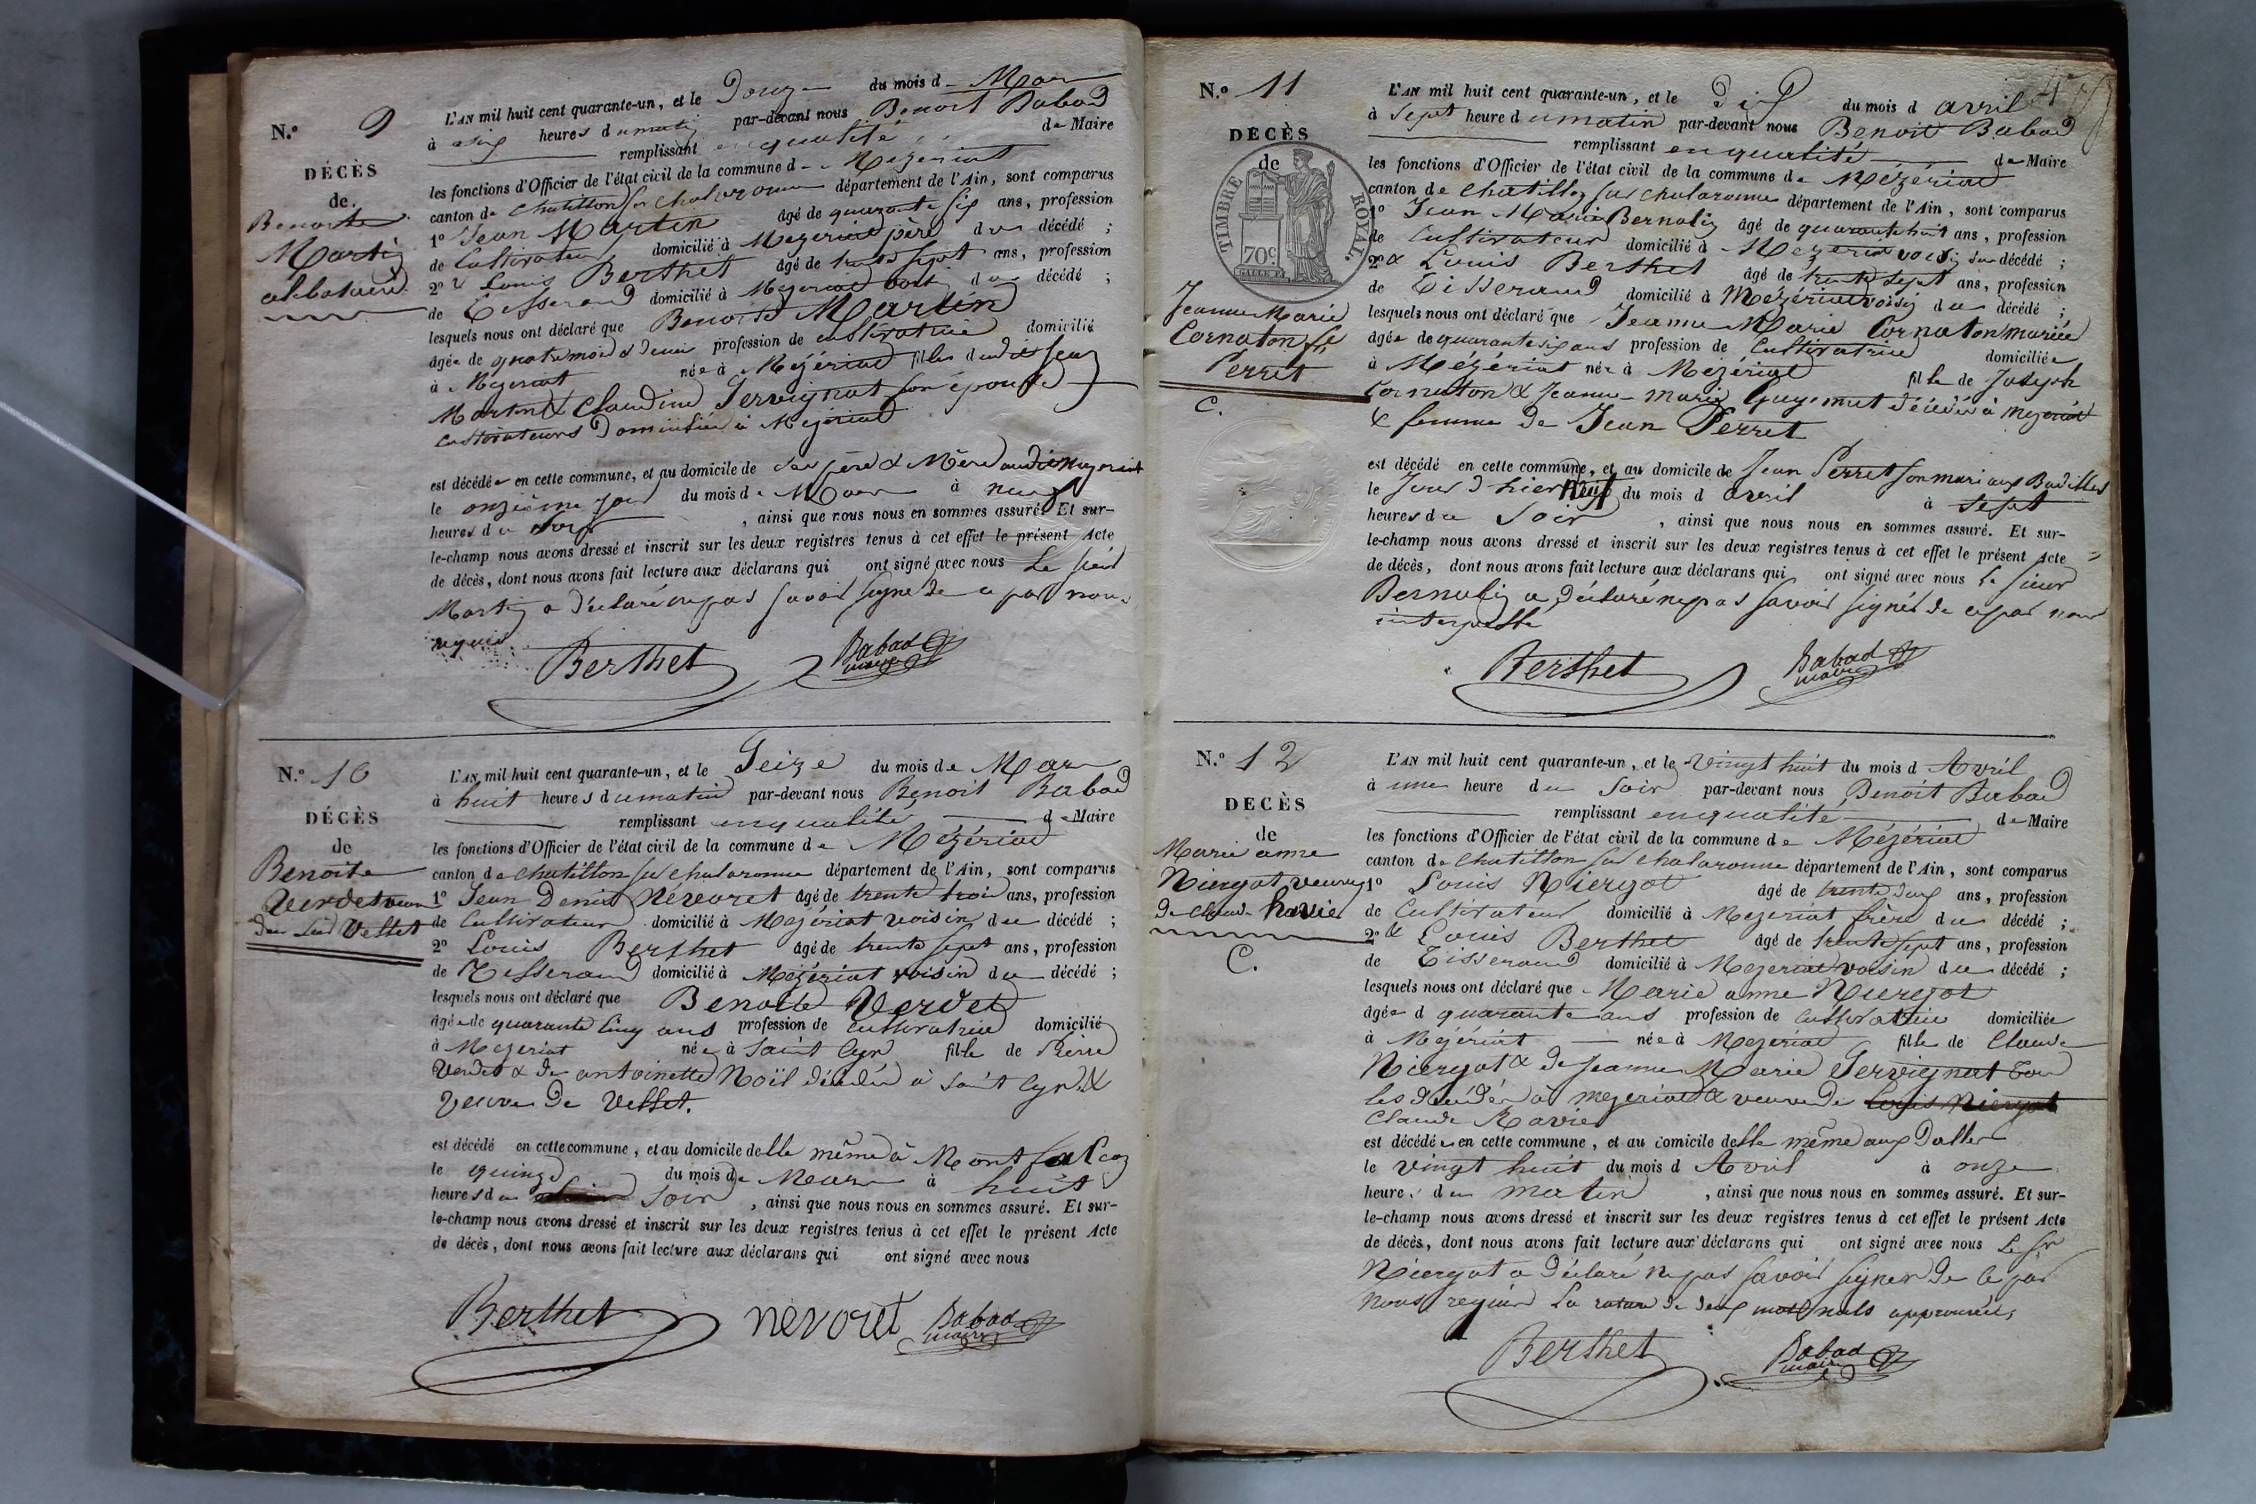 N.º 9
DÉCÈS
de
Benoite
Martin
célibataire
L'AN mil huit cent quarante-un, et le Douze du mois de Mars
à six heures du matin par-devant nous Benoit Babad
remplissant en qualité de Maire
les fonctions d'Officier de l'état civil de la commune de Mézériat
canton de Chatillon sur Chalaronne département de l'Ain, sont comparus
1º Jean Martin âgé de quarante six ans, profession
de Cultivateur domicilié à Mezeriat père du décédé ;
2º & Louis Berthet âgé de trente sept ans, profession
de Tisserand domicilié à Mezeriat voisin du décédé ;
lesquels nous ont déclaré que Benoite Martin
âgée de quatre mois & demi profession de cultivatrice domicilié
à Mezeriat née à Mézériat fille dudit Jean
Martin & Claudine Servignat son épouse
cultivateurs Domiciliés à Mezériat
est décédée en cette commune, et au domicile de ses père & Mère audit Mezeriat
le onzième jour du mois de Mars à neuf
heures du soir , ainsi que nous nous en sommes assuré. Et sur-
le-champ nous avons dressé et inscrit sur les deux registres tenus à cet effet le présent Acte
de décès, dont nous avons fait lecture aux déclarans qui ont signé avec nous Le sieur
Martin a déclaré ne pas savoir signer de ce par nous
requis
Berthet Babad
maire
N.º 10
DÉCÈS
de
Benoite
Verdet veuve
du Sieur Vellet
L'AN mil huit cent quarante-un, et le Seize du mois de Mars
à huit heures du matin par-devant nous Benoit Babad
remplissant en qualité de Maire
les fonctions d'Officier de l'état civil de la commune de Mézériat
canton de Chatillon sur Chalaronne département de l'Ain, sont comparus
1º Jean Denis Névoret âgé de trente trois ans, profession
de Cultivateur domicilié à Mezériat voisin du décédé ;
2º Louis Berthet âgé de trente sept ans, profession
de Tisserand domicilié à Mézériat voisin du décédé ;
lesquels nous ont déclaré que Benoite Verdet
âgée de quarante cinq ans profession de cultivatrice domicilié
à Mezeriat née à Saint Cyr fille de Pierre
Verdet & de antoinette Noël décédés à Saint Cyr &
Veuve de Vellet.
est décédé en cette commune, et au domicile d'elle même à Montfalcon
le quinze du mois de Mars à huit
heures du soir , ainsi que nous nous en sommes assuré. Et sur-
le-champ nous avons dressé et inscrit sur les deux registres tenus à cet effet le présent Acte
de décès, dont nous avons fait lecture aux déclarans qui ont signé avec nous
Berthet nevoret Babad
maire
N.º 11
DÉCÈS
de
TIMBRE ROYAL.
70c
Jeanne Marie
Cornaton fe
Perret
C.
L'AN mil huit cent quarante-un, et le Dix du mois d avril
à sept heure du matin par-devant nous Benoit Babad
remplissant en qualité de Maire
les fonctions d'Officier de l'état civil de la commune de Mézériat
canton de Chatillon sur Chalaronne département de l'Ain, sont comparus
1º Jean Marie Bernolin âgé de quarante huit ans, profession
de Cultivateur domicilié à Mezeriat voisin du décédé ;
2º & Louis Berthet âgé de trente sept ans, profession
de Tisserand domicilié à Mézériat voisin du décédé ;
lesquels nous ont déclaré que Jeanne Marie Cornaton mariée
âgée de quarante six ans profession de Cultivatrice domiciliée
à Mézériat née à Mezériat fille de Joseph
Cornaton & Jeanne Marie Guyonnet décédés à Mezeriat
& femme de Jean Perret
est décédé en cette commune, et au domicile de Jean Perret son mari aux
le Jour d'hier neuf du mois d avril à sept
heures du Soir , ainsi que nous nous en sommes assuré. Et sur-
le-champ nous avons dressé et inscrit sur les deux registres tenus à cet effet le présent Acte
de décès, dont nous avons fait lecture aux déclarans qui ont signé avec nous Le Sieur
Bernolin a déclaré ne pas savoir signer de ce par nous
interpellé
Berthet Babad
maire
N.º 12
DECÈS
de
Marie anne
Niergot veuve
de Claude Ravie
C.
L'AN mil huit cent quarante-un, et le Vingt huit du mois d Avril
à une heure du Soir par-devant nous Benoit Babad
remplissant en qualité de Maire
les fonctions d'Officier de l'état civil de la commune de Mézériat
canton de Chatillon sur Chalaronne département de l'Ain, sont comparus
1º Louis Niergot âgé de trente deux ans, profession
de Cultivateur domicilié à Mezeriat frère du décédé ;
2º & Louis Berthet âgé de trente sept ans, profession
de Tisserand domicilié à Mezeriat voisin du décédé ;
lesquels nous ont déclaré que Marie anne Niergot
âgée d quarante ans profession de Cultivatrice domiciliée
à Mézériat née à Mezériat fille de Claude
Niergot & de Jeanne Marie Servignat tous
les décédés à mezeriat & veuve de Louis Niergot
Claude Ravie
est décédée en cette commune, et au domicile d'elle même aux
le vingt huit du mois d Avril à onze
heure du matin , ainsi que nous nous en sommes assuré. Et sur-
le-champ nous avons dressé et inscrit sur les deux registres tenus à cet effet le présent Acte
de décès, dont nous avons fait lecture aux déclarans qui ont signé avec nous Le Sr
Niergot a déclaré ne pas savoir signer de ce par
nous requis La rature de deux mots nuls approuvée,
Berthet Babad
maire